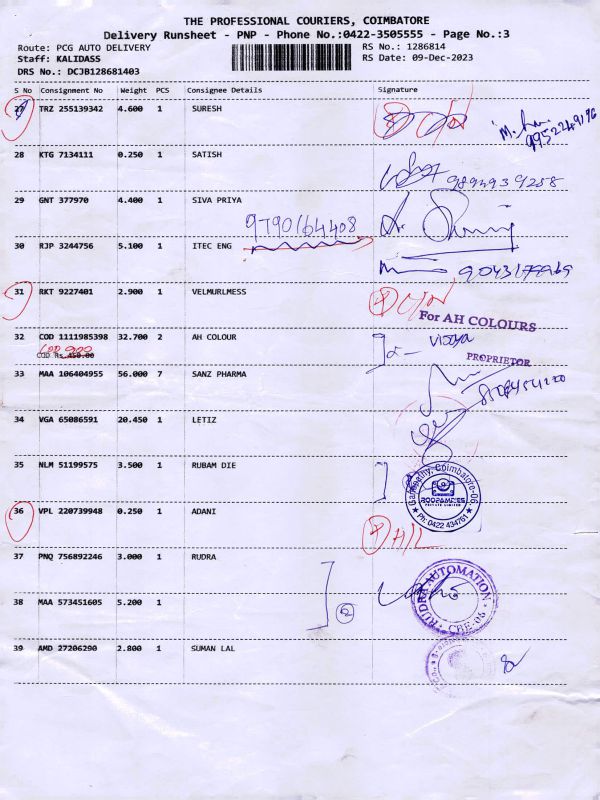 THE PROFESSIONAL COURIERS, COIMBATORE
Delivery Runsheet - PNP - Phone No.:0422-3505555 - Page No.:3
Route: PCG AUTO DELIVERY
RS No.: 1286814
Staff: KALIDASS
RS Date: 09-Dec-2023
DRS No.: DCJB128681403
S No Consignment No Weight PCS Consignee Details Signature
27 TRZ 255139342 4.600 1 SURESH
28 KTG 7134111 0.250 1 SATISH
29 GNT 377970 4.400 1 SIVA PRIYA
9790164408
30 RJP 3244756 5.100 1 ITEC ENG
31 RKT 9227401 2.900 1 VELMURLMESS
For AH COLOURS
32 COD 1111985398 32.700 2 AH COLOUR
COD Rs.450.00
PROPRIETOR
33 MAA 106404955 56.000 7 SANZ PHARMA
34 VGA 65086591 20.450 1 LETIZ
35 NLM 51199575 3.500 1 RUBAM DIE
Ganapathy, Coimbatore-06
PRIVATE LIMITED
36 VPL 220739948 0.250 1 ADANI
37 PNQ 756892246 3.000 1 RUDRA
RUDRA AUTOMATION
38 MAA 573451605 5.200 1
2
39 AMD 27206290 2.800 1 SUMAN LAL